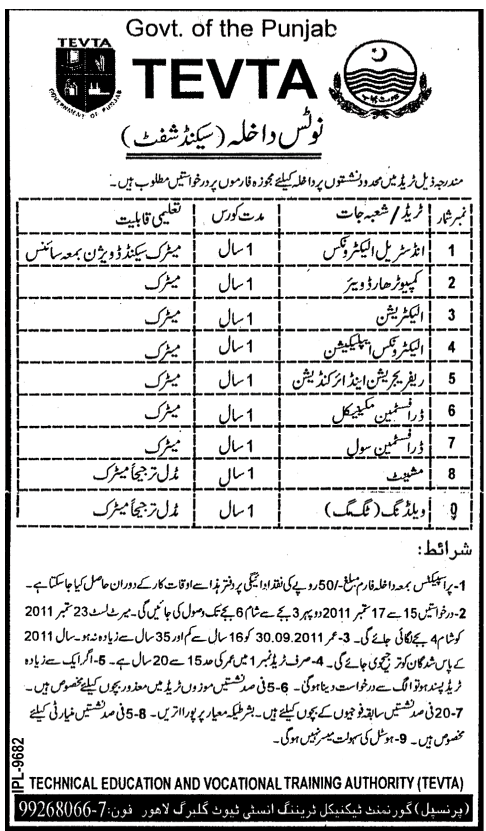 Govt. of the Punjab
TEVTA
TEVTA
GOVERNMENT OF PUNJAB
نوٹس داخلہ (سیکنڈ شفٹ)
مندرجہ ذیل ٹریڈ میں محدود نشستوں پر داخلہ کیلئے مجوزہ فارموں پر درخواستیں مطلوب ہیں۔
نمبر شمار ٹریڈ/شعبہ جات مدت کورس تعلیمی قابلیت
1 انڈسٹریل الیکٹرونکس 1 سال میٹرک سیکنڈ ڈویژن بمعہ سائنس
2 کمپیوٹر ہارڈویئر 1 سال میٹرک
3 الیکٹریشن 1 سال میٹرک
4 الیکٹرونکس ایپلیکیشن 1 سال میٹرک
5 ریفریجریشن اینڈ ائر کنڈیشن 1 سال میٹرک
6 ڈرافٹسمین مکینیکل 1 سال میٹرک
7 ڈرافٹسمین سول 1 سال میٹرک
8 مشینسٹ 1 سال مڈل ترجیحاً میٹرک
9 ویلڈنگ (ٹگ مگ) 1 سال مڈل ترجیحاً میٹرک
شرائط:
1- پراسپیکٹس بمعہ داخلہ فارم مبلغ -/50 روپے کی نقد ادائیگی پر دفتر ہذا سے اوقات کار کے دوران حاصل کیا جا سکتا ہے۔
2- درخواستیں 15 سے 17 ستمبر 2011 دوپہر 3 بجے سے شام 6 بجے تک وصول کی جائیں گی۔ میرٹ لسٹ 23 ستمبر 2011
کو شام 4 بجے لگائی جائے گی۔ 3- عمر 30.09.2011 کو 16 سال سے کم اور 35 سال سے زیادہ نہ ہو۔ سال 2011
کے پاس شدگان کو ترجیح دی جائے گی۔ 4- صرف ٹریڈ نمبر 1 میں عمر کی حد 15 تا 20 سال ہے۔ 5- اگر ایک سے زیادہ
ٹریڈ پسند ہو تو الگ سے درخواست دینا ہوگی۔ 6- 5 فی صد نشستیں موزوں ٹریڈ میں معذور بچوں کیلئے مخصوص ہیں۔
7- 20 فی صد نشستیں سابقہ فوجیوں کے بچوں کیلئے ہیں۔ بشرطیکہ معیار پر پورا اتریں۔ 8- 5 فی صد نشستیں خیارٹی کیلئے
مخصوص ہیں۔ 9- ہوسٹل کی سہولت میسر نہیں ہوگی۔
IPL-9682
TECHNICAL EDUCATION AND VOCATIONAL TRAINING AUTHORITY (TEVTA)
(پرنسپل) گورنمنٹ ٹیکنیکل ٹریننگ انسٹی ٹیوٹ گلبرگ لاہور فون: 7-99268066